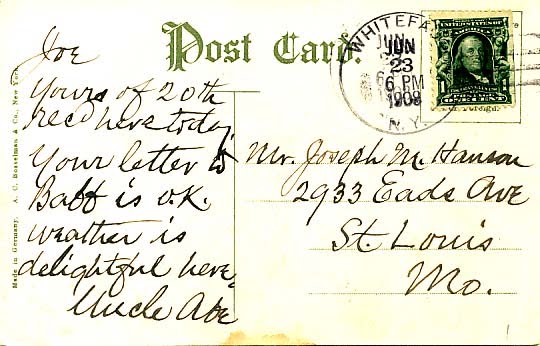 Post Card.
WHITEFA
JUN
JUN
23
6 PM
1909
N.Y.
UNITED STATES OF AMERICA
1
Joe
Yours of 20th
recd here today,
Your letter to
Babb is O.K.
weather is
delightful here,
Uncle Abe
Mr. Joseph M. Hanson
2933 Eads Ave
St. Louis
Mo.
Made in Germany. A. C. Bosselman & Co., New York